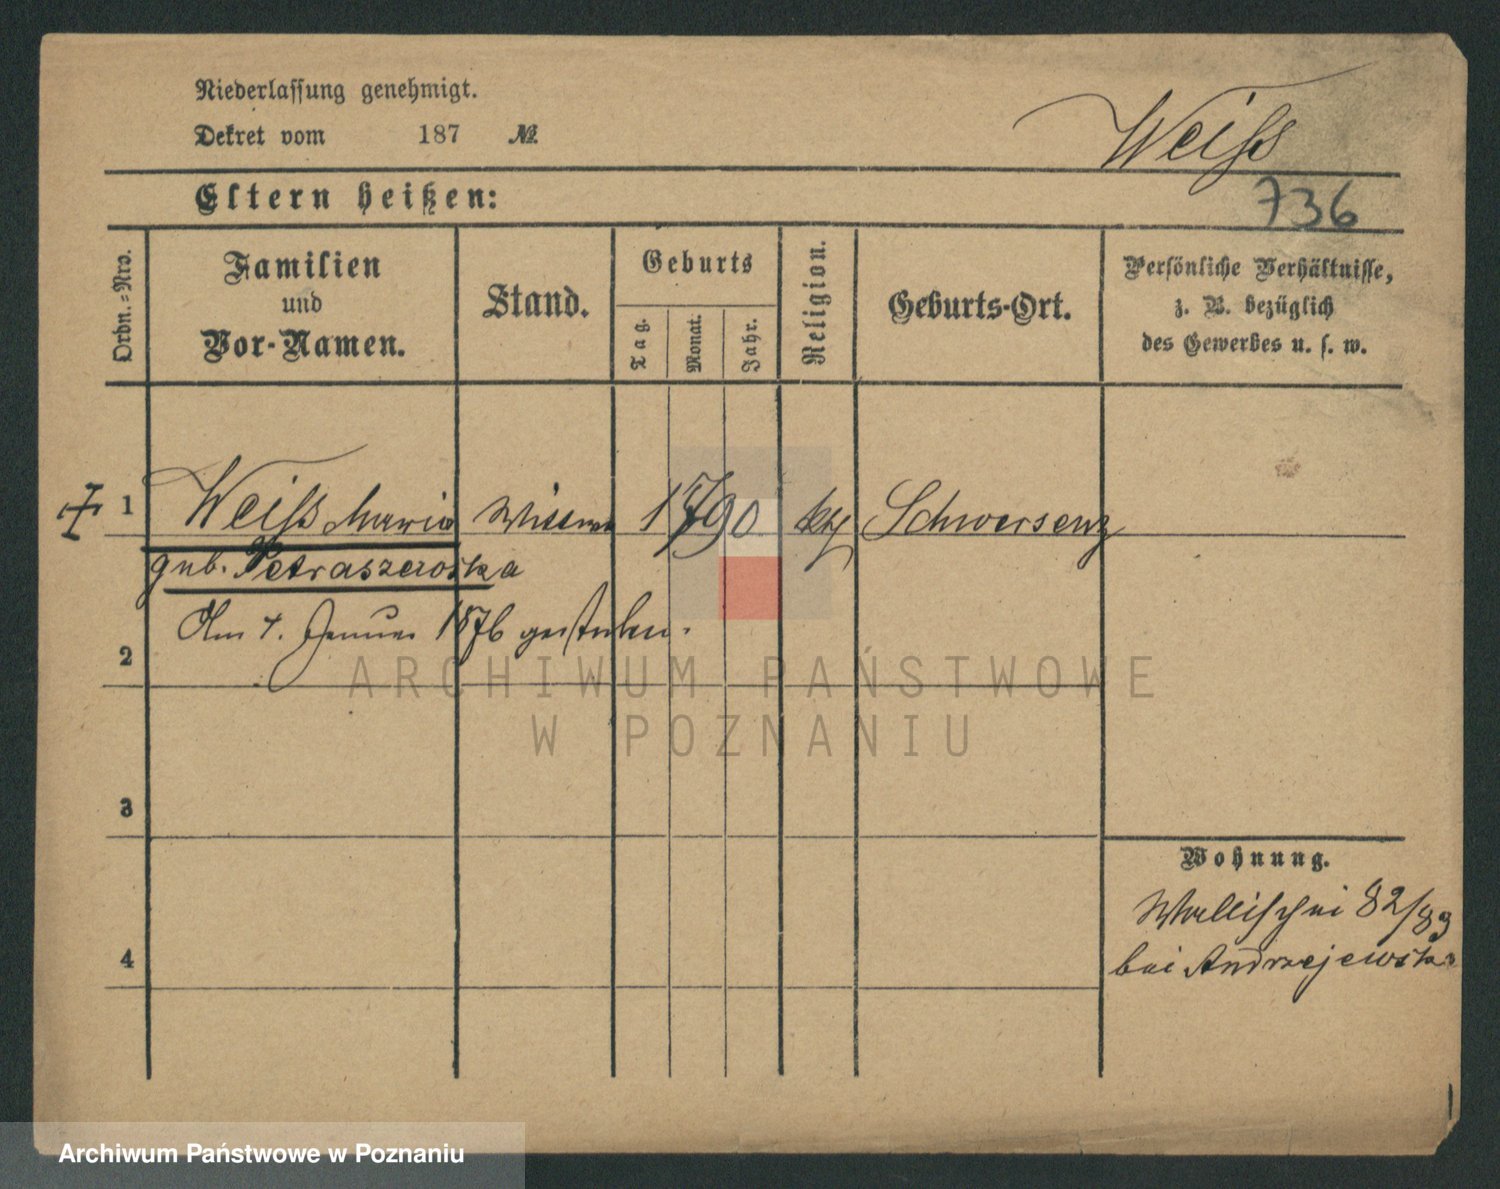 Niederlassung genehmigt.
Dekret vom 187 №
Weiss
Eltern heißen:
736
Ordn.-Nro.
Familien
und
Vor-Namen.
Stand.
Geburts
Tag.
Monat.
Jahr.
Religion.
Geburts-Ort.
Persönliche Verhältnisse,
z. B. bezüglich
des Gewerbes u. s. w.
1 Weiss Maria Wittwe 1790 kth Schwersenz
geb. Petraszewska
Am 4. Januar 1876 gestorben.
2
ARCHIWUM PAŃSTWOWE
W POZNANIU
3
Wohnung.
Wallischei 82/83
bei Andrzejewska
4
Archiwum Państwowe w Poznaniu